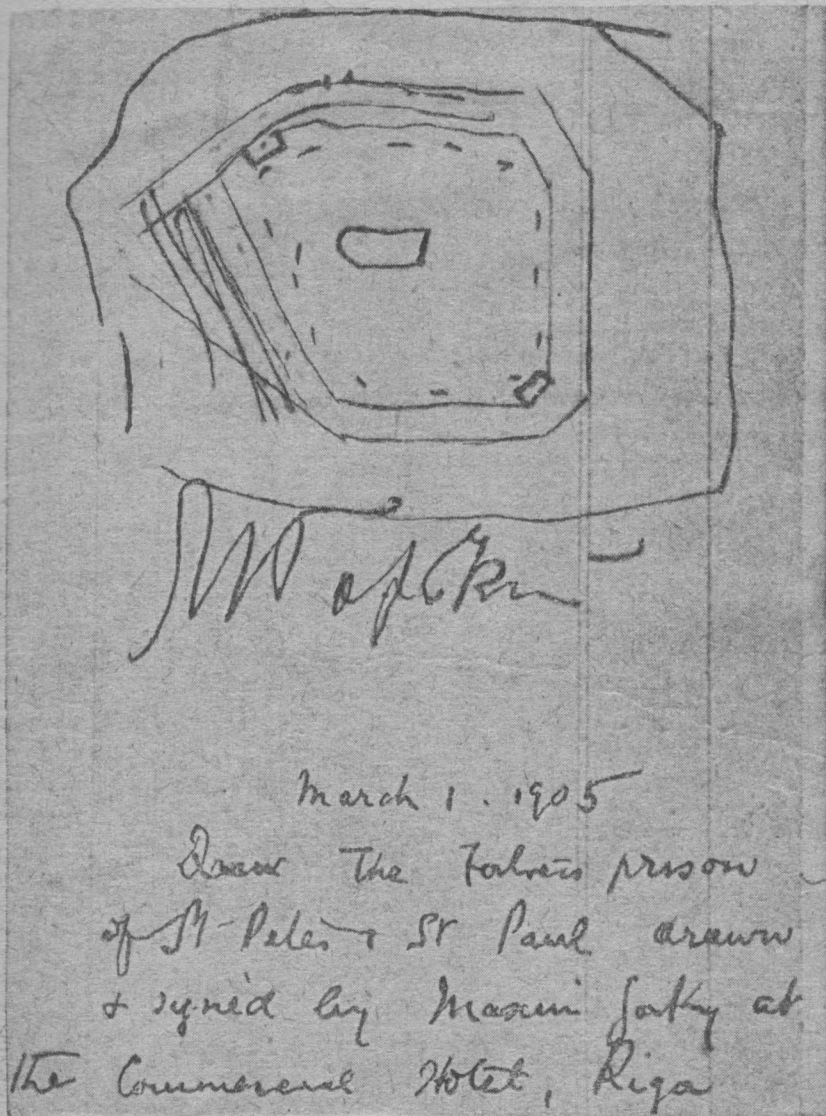 М Горький
March 1. 1905
The Fortress prison
of St Peter & St Paul drawn
& signed by Maxim Gorky at
the Commercial Hotel, Riga